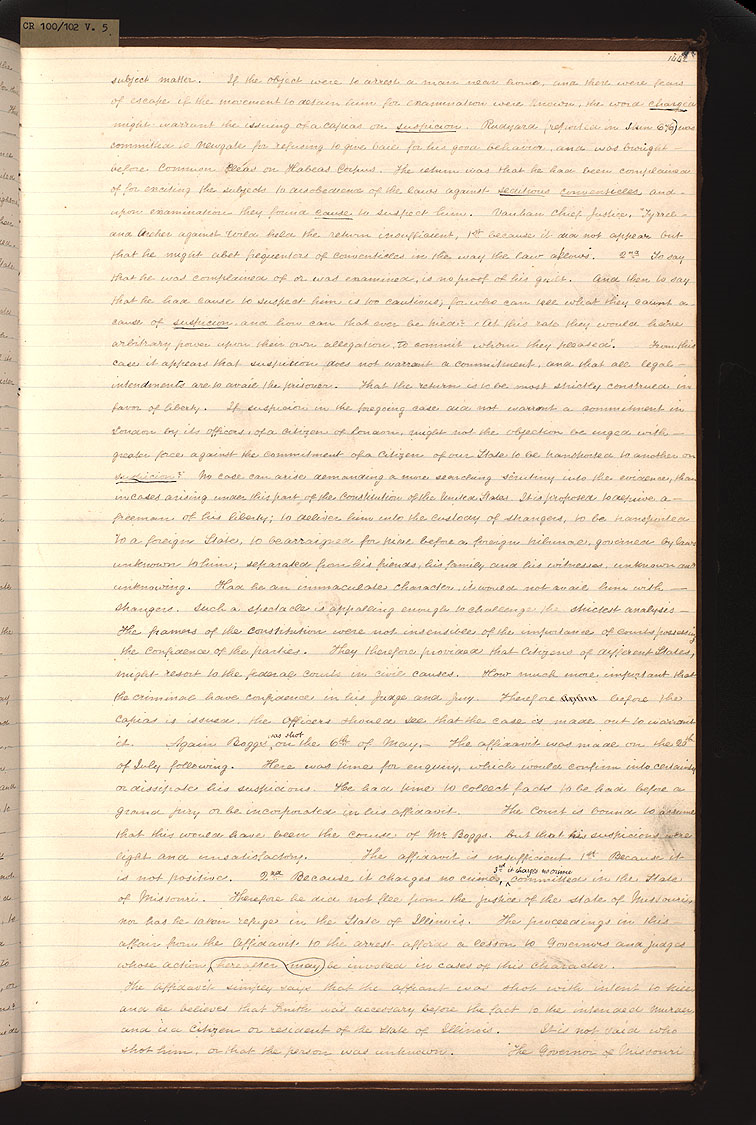 CR 100/102 V. 5.
1442
subject matter. If the object were to arrest a man near home, and there were fears
of escape if the movement to detain him for examination were known, the word charged
might warrant the issuing of a capias on suspicion. Rudyard (reported in Skin 676) was
committed to Newgate for refusing to give bail for his good behavior, and was brought
before Common Pleas on Habeas Corpus. The return was that he had been complained
of for exciting the subjects to disobedience of the laws against seditious conventicles, and
upon examination they found cause to suspect him. Vaughan Chief Justice, "Tyrrel
and Archer against Wild held the return insufficient, 1st because it did not appear but
that he might abet frequenters of conventicles in the way the law allows. 2nd To say
that he was complained of or was examined, is no proof of his guilt. And then to say
that he had cause to suspect him is too cautious; for who can tell what they count a
cause of suspicion, and how can that ever be tried? At this rate they would have
arbitrary power upon their own allegation, to commit whom they pleased". From this
case it appears that suspicion does not warrant a commitment, and that all legal
intendments are to avail the prisoner. That the return is to be most strictly construed in
favor of liberty. If suspicion in the foregoing case did not warrant a commitment in
London by its officers, of a citizen of London, might not the objection be urged with
greater force against the commitment of a citizen of our State to be transported to another on
suspicion? No case can arise demanding a more searching scrutiny into the evidence, than
in cases arising under this part of the Constitution of the United States. It is proposed to deprive a
freeman of his liberty; to deliver him into the custody of strangers, to be transported
to a foreign State, to be arraigned for trial before a foreign tribunal, governed by laws
unknown to him; separated from his friends, his family and his witnesses, unknown and
unknowing. Had he an immaculate character, it would not avail him with
strangers. Such a spectacle is appalling enough to challenge the strictest analysis
The framers of the Constitution were not insensible of the importance of courts possessing
the confidence of the parties. They therefore provided that citizens of different States,
might resort to the federal Courts in civil causes. How much more important that
the criminal have confidence in his Judge and Jury. Therefore before the
Capias is issued, the officers should see that the case is made out to warrant
it. Again Boggs was shot on the 6th of May. The affidavit was made on the 20th
of July following. Here was time for enquiry, which would confirm into certainty
or dissipate his suspicions. He had time to collect facts to be had before a
grand jury or be incorporated in his affidavit. The Court is bound to assume
that this would have been the course of Mr Boggs. but that his suspicions were
light and unsatisfactory. The affidavit is insufficient 1st Because it
is not positive. 2nd Because it charges no crime, 3rd it charges no crime committed in the State
of Missouri. Therefore he did not flee from the justice of the State of Missouri,
nor has he taken refuge in the State of Illinois. The proceedings in this
affair from the Affidavit to the arrest afford a lesson to Governors and Judges
whose action hereafter may be invoked in cases of this character.
The Affidavit simply says that the affiant was shot with intent to kill;
and he believes that Smith was accessary before the fact to the intended murder,
and is a citizen or resident of the State of Illinois. It is not said who
shot him, or that the person was unknown. The Governor of Missouri